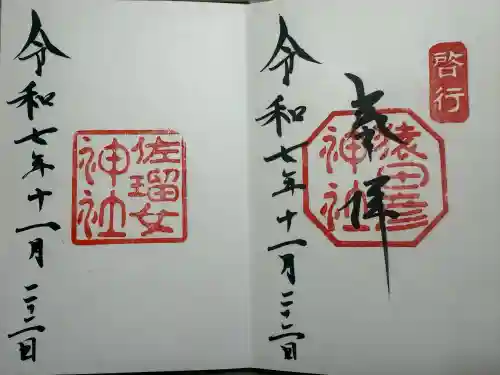 啓行
奉拝
猿田彦
神社
令和七年十一月二十二日
佐瑠女
神社
令和七年十一月二十二日